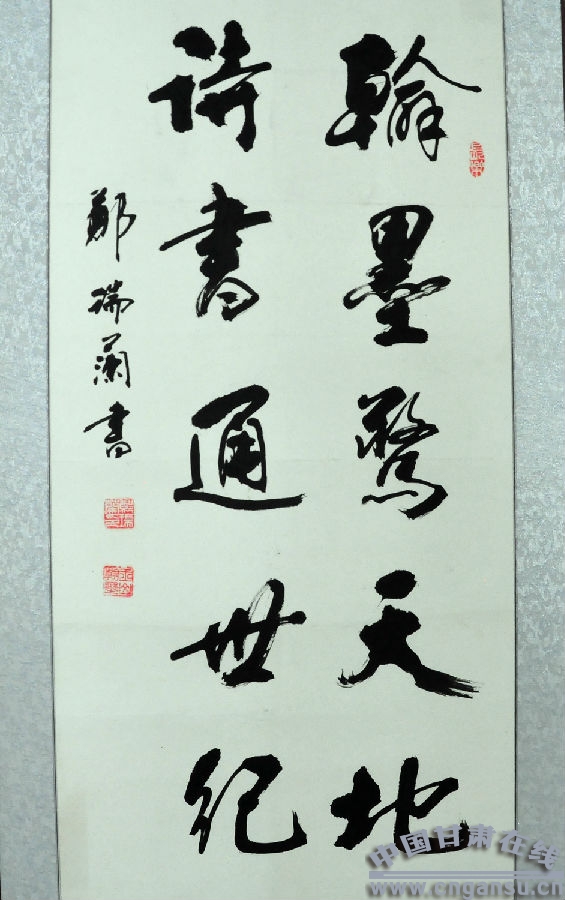 翰墨驚天地
詩書通世紀
鄭瑞蘭書
中国甘肃在线
www.cngansu.cn